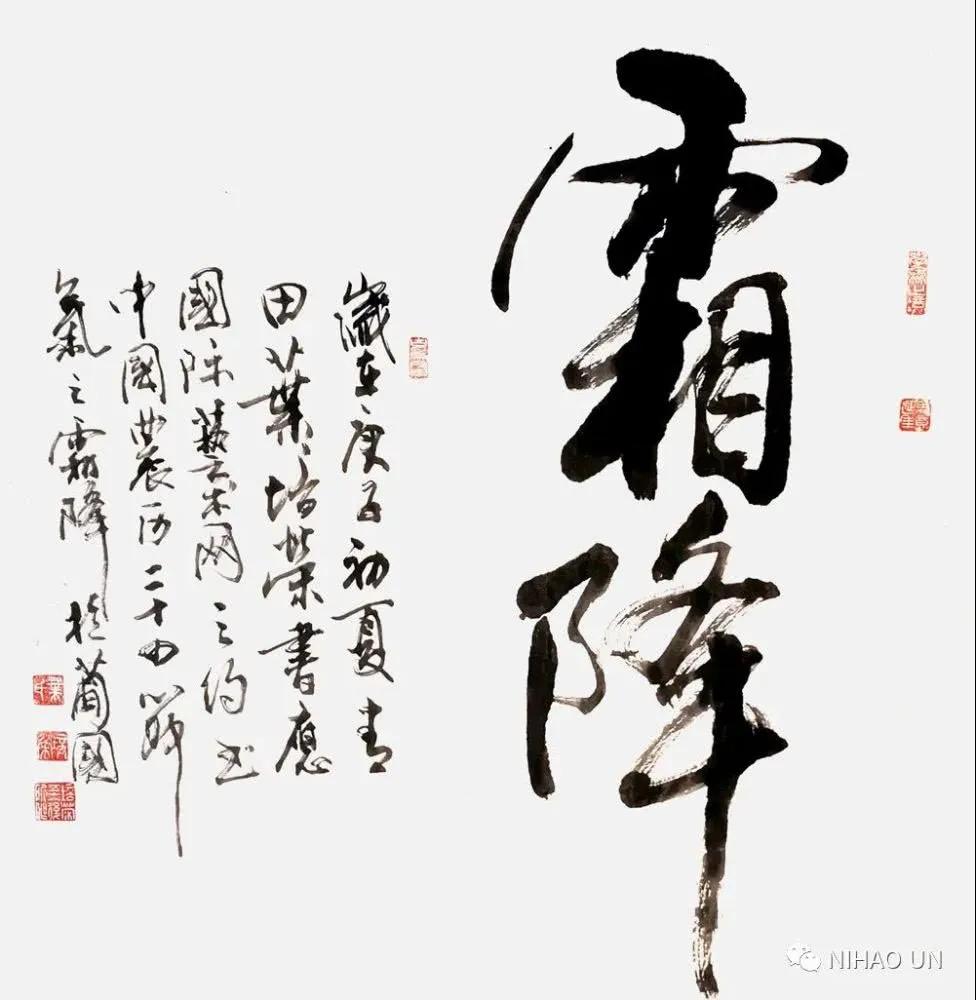 霜降
歲在庚子初夏青
田葉培榮書應
國際藝术网之约书
中國農历二十四節
氣之霜降 於莆國
NIHAO UN